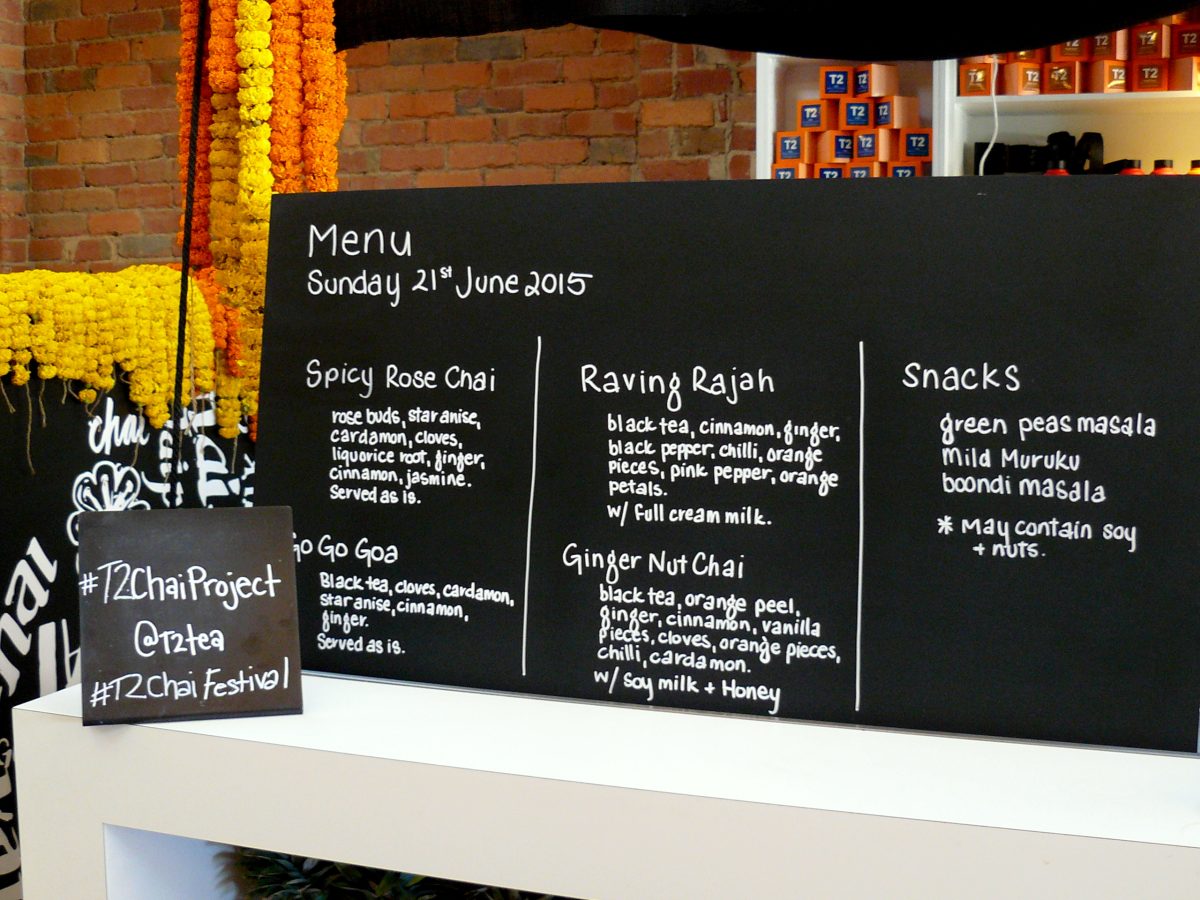 Menu
Sunday 21st June 2015
Spicy Rose Chai
rose buds, star anise,
cardamon, cloves,
liquorice root, ginger,
cinnamon, jasmine.
Served as is.
Go Go Goa
Black tea, cloves, cardamon,
star anise, cinnamon,
ginger.
Served as is.
Raving Rajah
black tea, cinnamon, ginger,
black pepper, chilli, orange
pieces, pink pepper, orange
petals.
w/ full cream milk.
Ginger Nut Chai
black tea, orange peel,
ginger, cinnamon, vanilla
pieces, cloves, orange pieces,
chilli, cardamon.
w/ soy milk + Honey
Snacks
green peas masala
Mild Muruku
boondi masala
* May contain soy
+ nuts.
#T2ChaiProject
@T2tea
#T2ChaiFestival
chai
T2
T2
T2
T2
T2
T2
T2
T2
T2